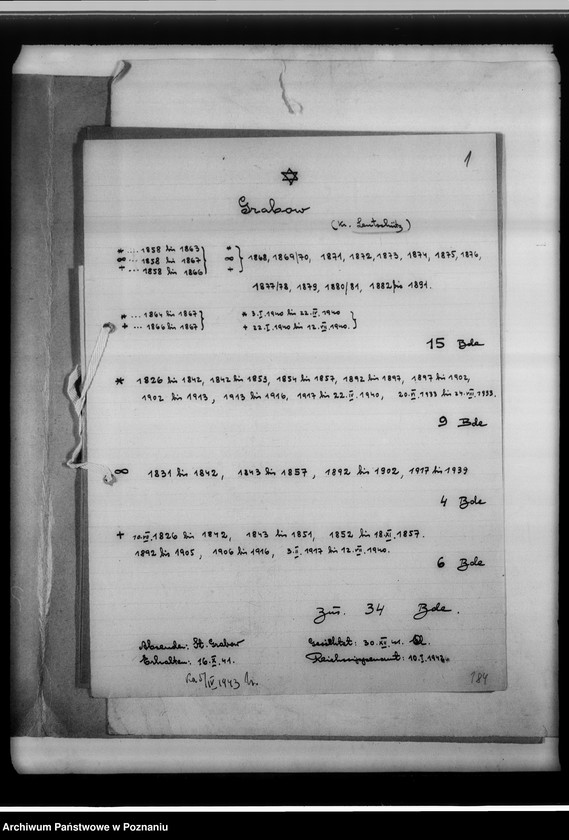 1
✡
Grabow
(Kr. Lentschütz)
* .... 1858 bis 1863
∞ ... 1858 bis 1867
+ ... 1858 bis 1866
* ∞ + 1868, 1869/70, 1871, 1872, 1873, 1874, 1875, 1876,
1877/78, 1879, 1880/81, 1882 bis 1891.
* ... 1864 bis 1867
+ ... 1866 bis 1867
* 3.I.1940 bis 22.IV.1940
+ 22.I.1940 bis 12.VII.1940.
15 Bde
* 1826 bis 1842, 1842 bis 1853, 1854 bis 1857, 1892 bis 1897, 1897 bis 1902,
1902 bis 1913, 1913 bis 1916, 1917 bis 22.IV.1940, 1933 bis 1933.
9 Bde
∞ 1831 bis 1842, 1843 bis 1857, 1892 bis 1902, 1917 bis 1939
4 Bde
+ 1826 bis 1842, 1843 bis 1851, 1852 bis 1857.
1892 bis 1905, 1906 bis 1916, 3.II.1917 bis 12.VII.1940.
6 Bde
Zus. 34 Bde.
Absender: St. Grabow
Erhalten: 16.X.41.
Gesichtet: 30.XI.41.
Reichssippenamt: 10.I.1942.
IV 1943
184
Archiwum Państwowe w Poznaniu